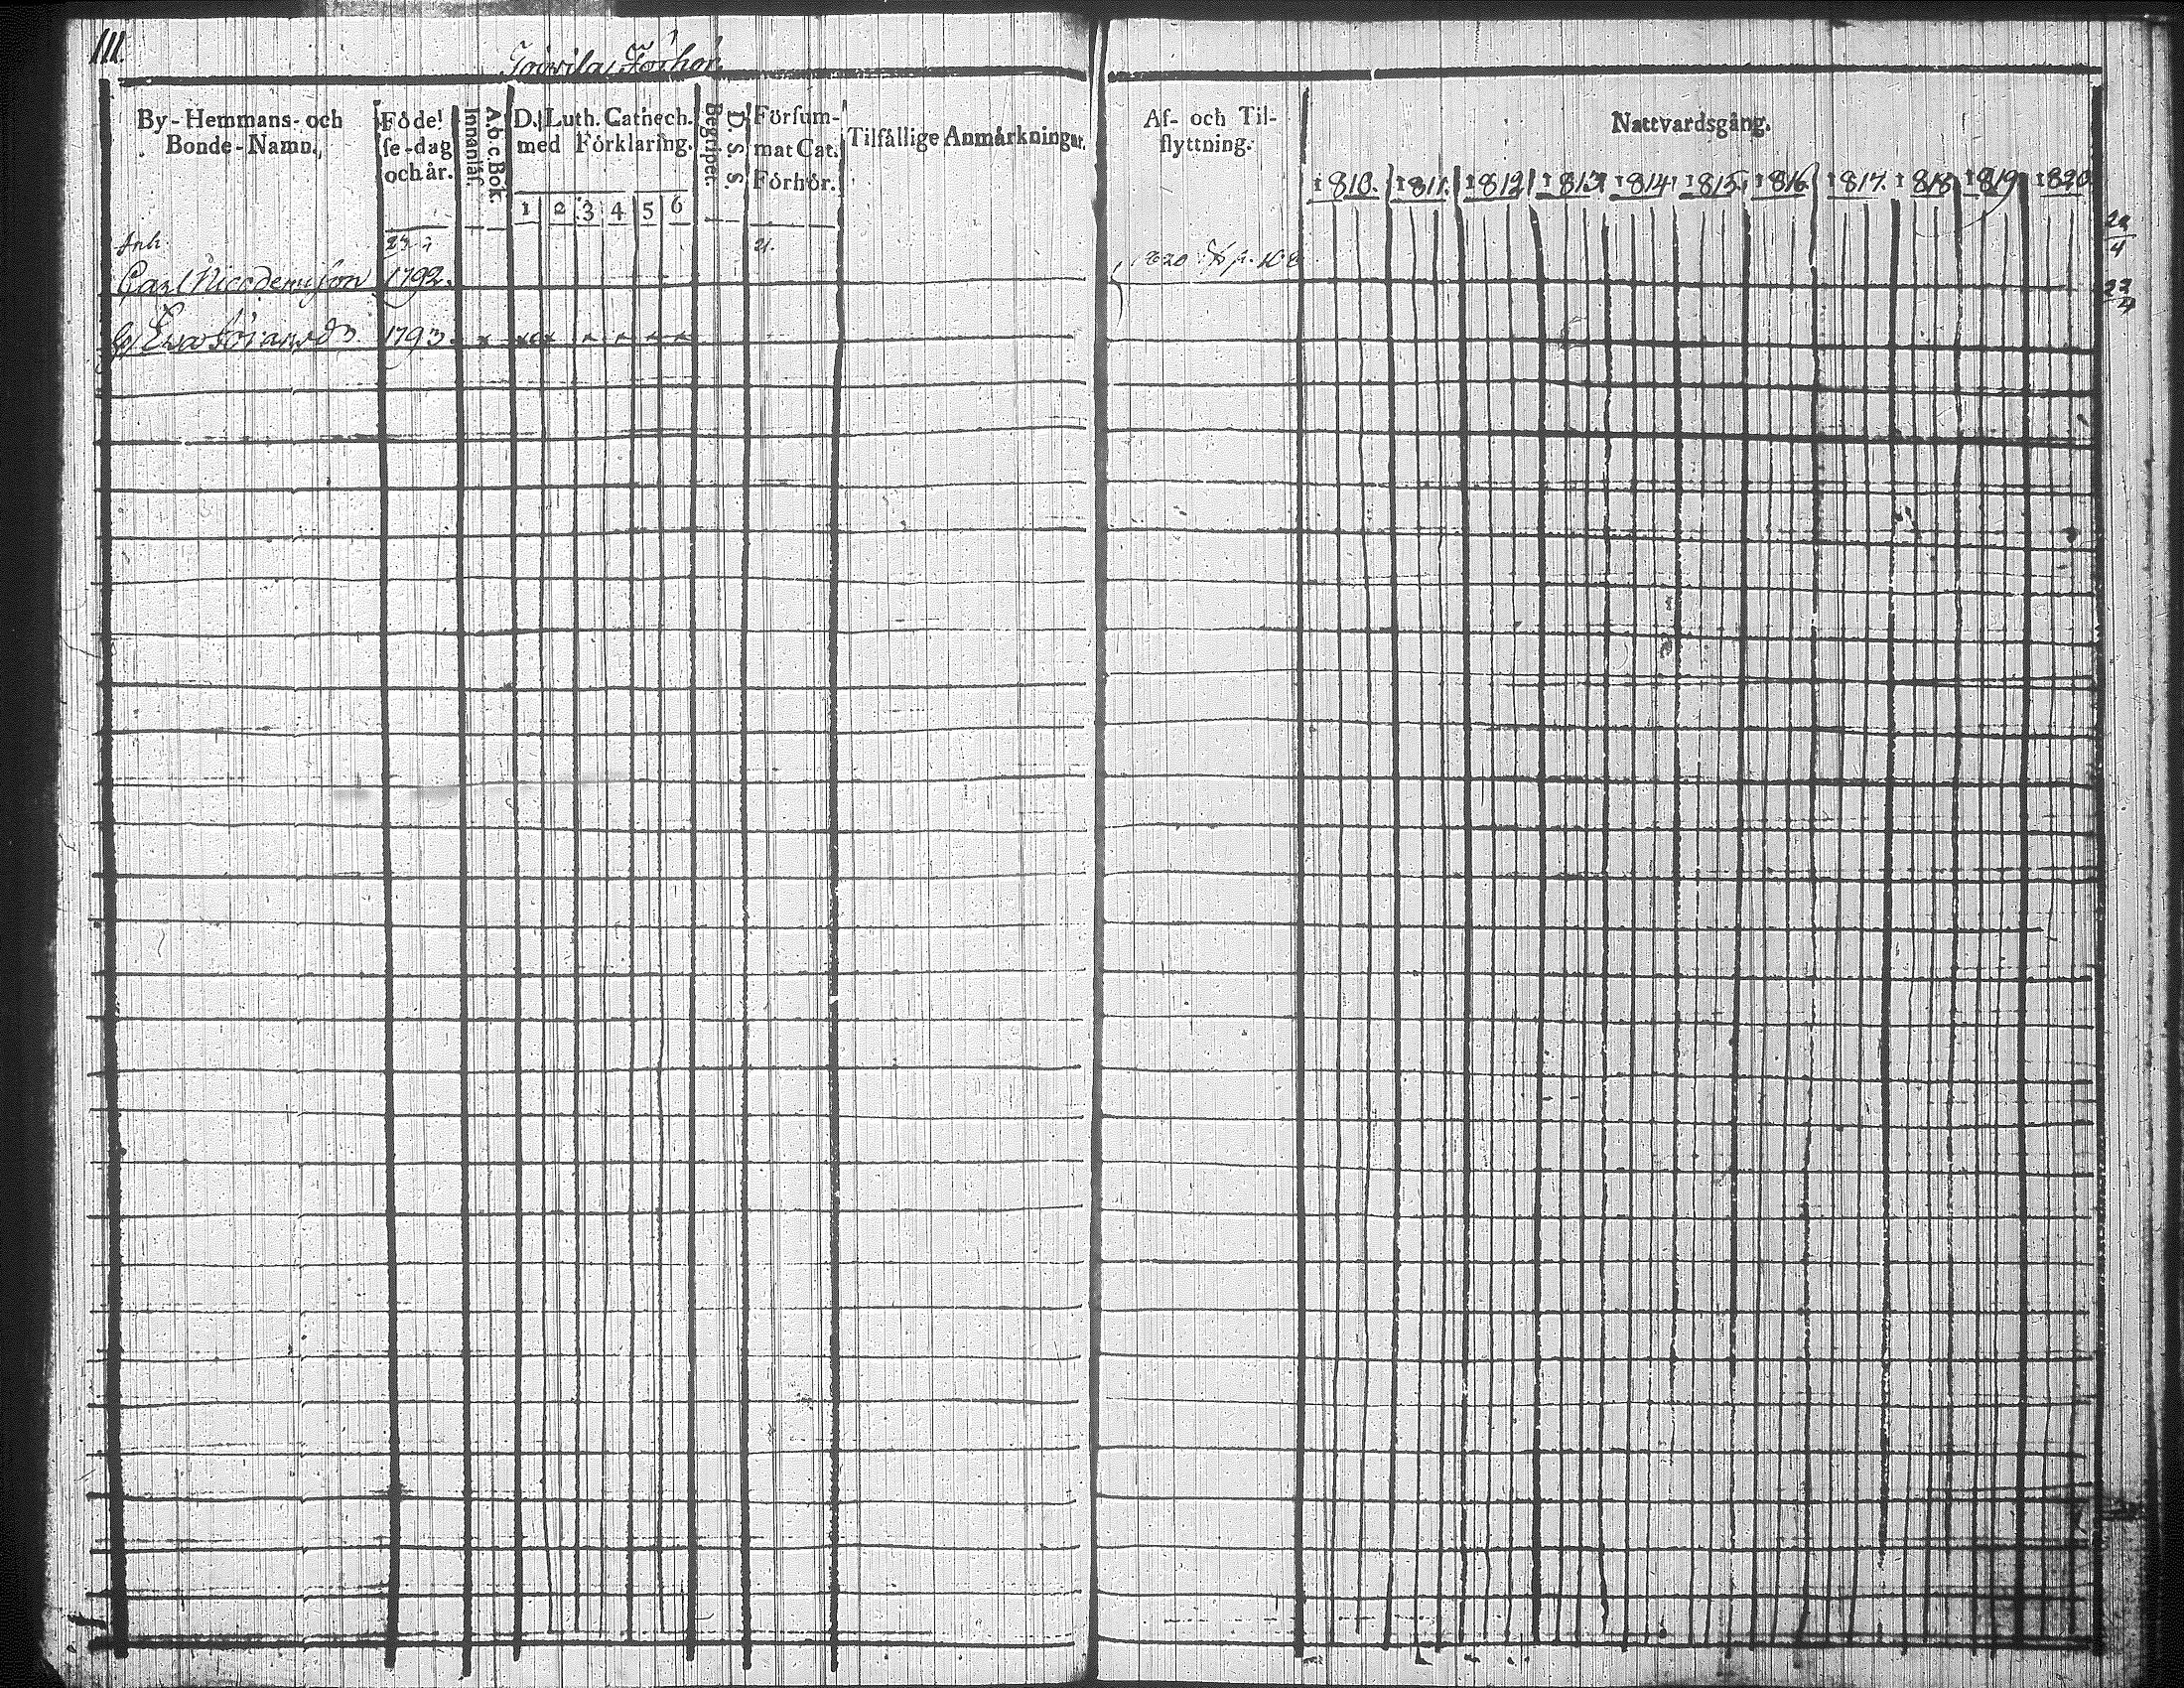 111.
Förhör
By-Hemmans- och
Bonde-Namn.
Föde!
se-dag
och år.
Innanläs.
A.b.c Bok.
D. Luth. Cathech.
med Förklaring.
1 2 3 4 5 6
Begripet.
D. S. S.
Försum-
mat Cat.
Förhör.
Tilfällige Anmärkningar.
Inh.
21.
Carl Nicodemisson 1792.
Ewa 1793. x x x x x x x
Af- och Til-
flyttning.
Nattvardsgång.
1810. 1811. 1812 1813 1814 1815. 1816 1817. 1818 1819 1820
1820